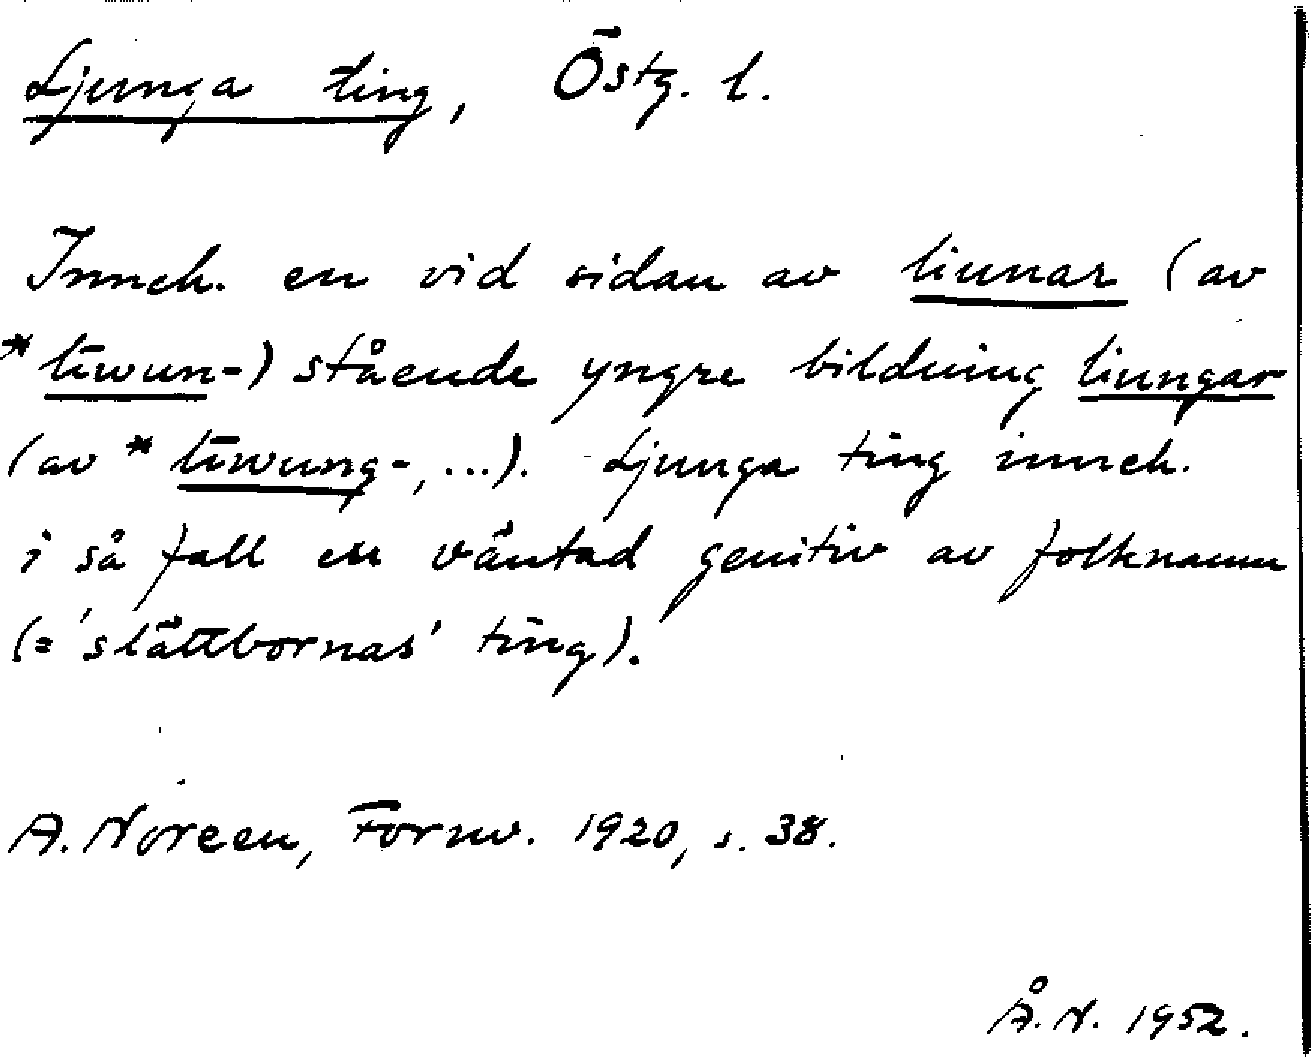 Ljunga ting, Östg. l.
Inneh. en vid sidan av liunar (av
*līwun-) stående yngre bildning liungar
(av *līwung-, ...). Ljunga ting inneh.
i så fall en väntad genitiv av folknamn
(= 'slättbornas' ting).
A. Noreen, Fornv. 1920, s. 38.
Å. N. 1952.